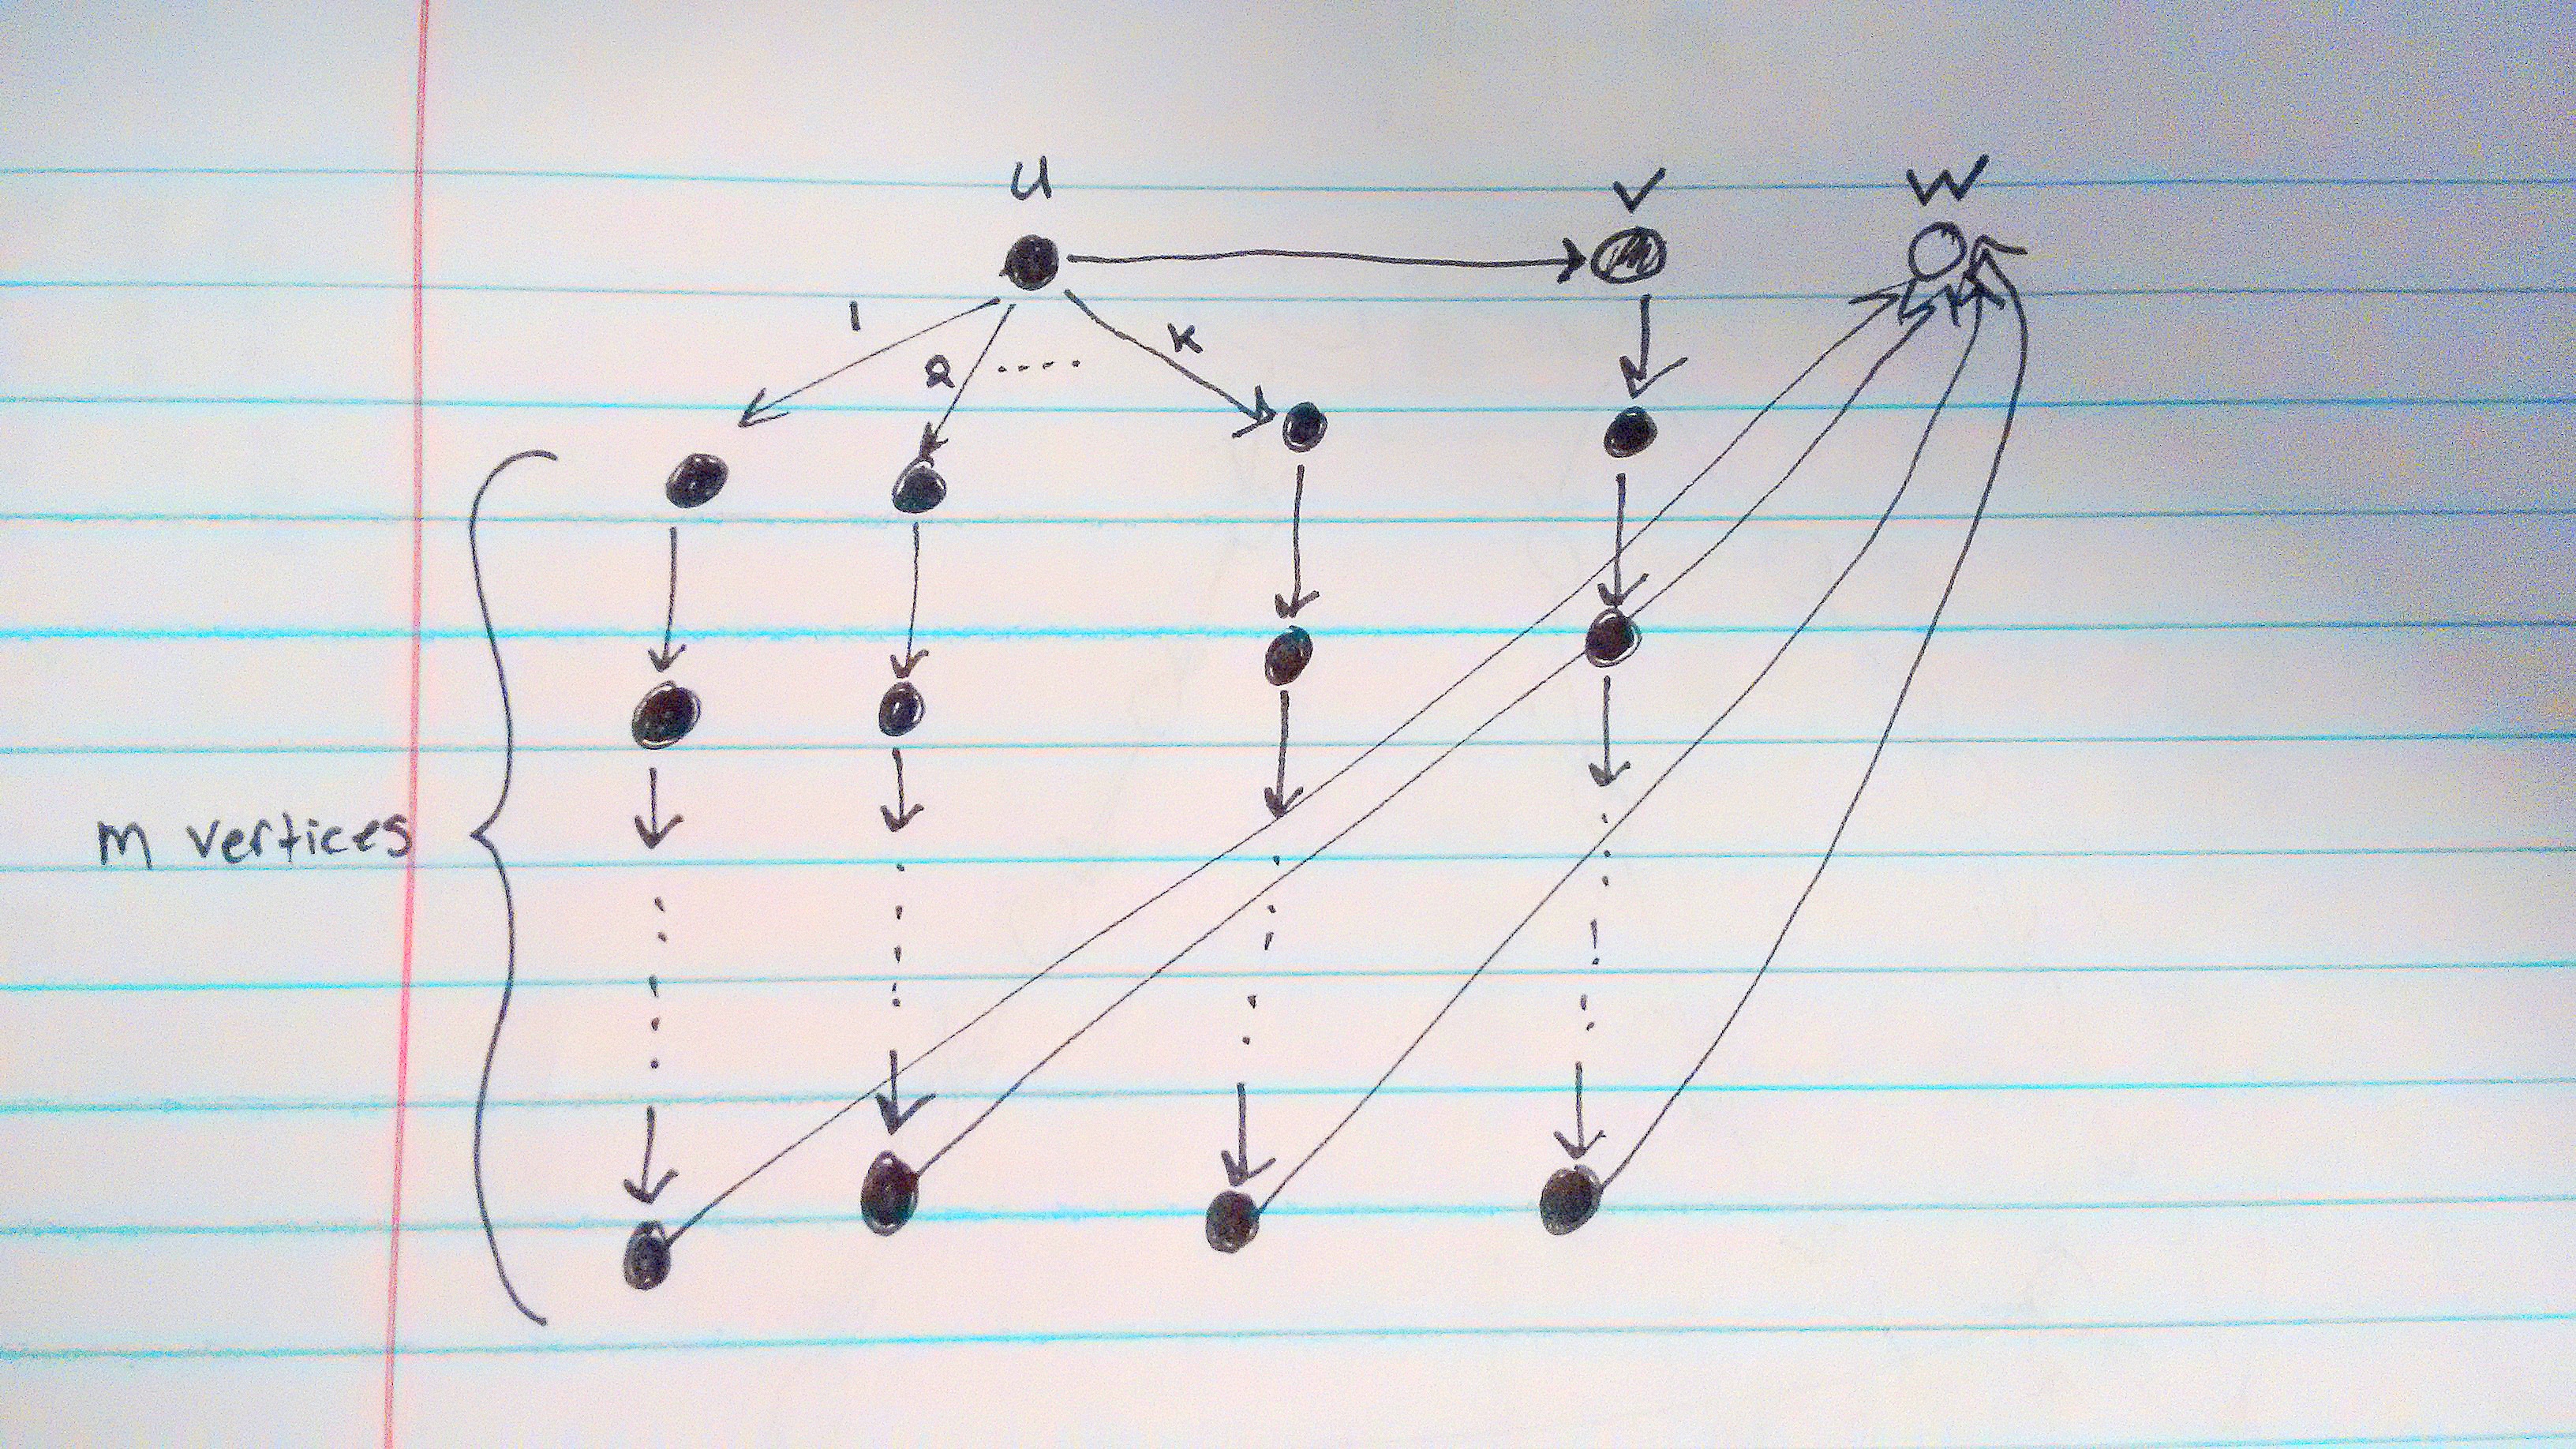 u v w
1
2 ..... k
m vertices